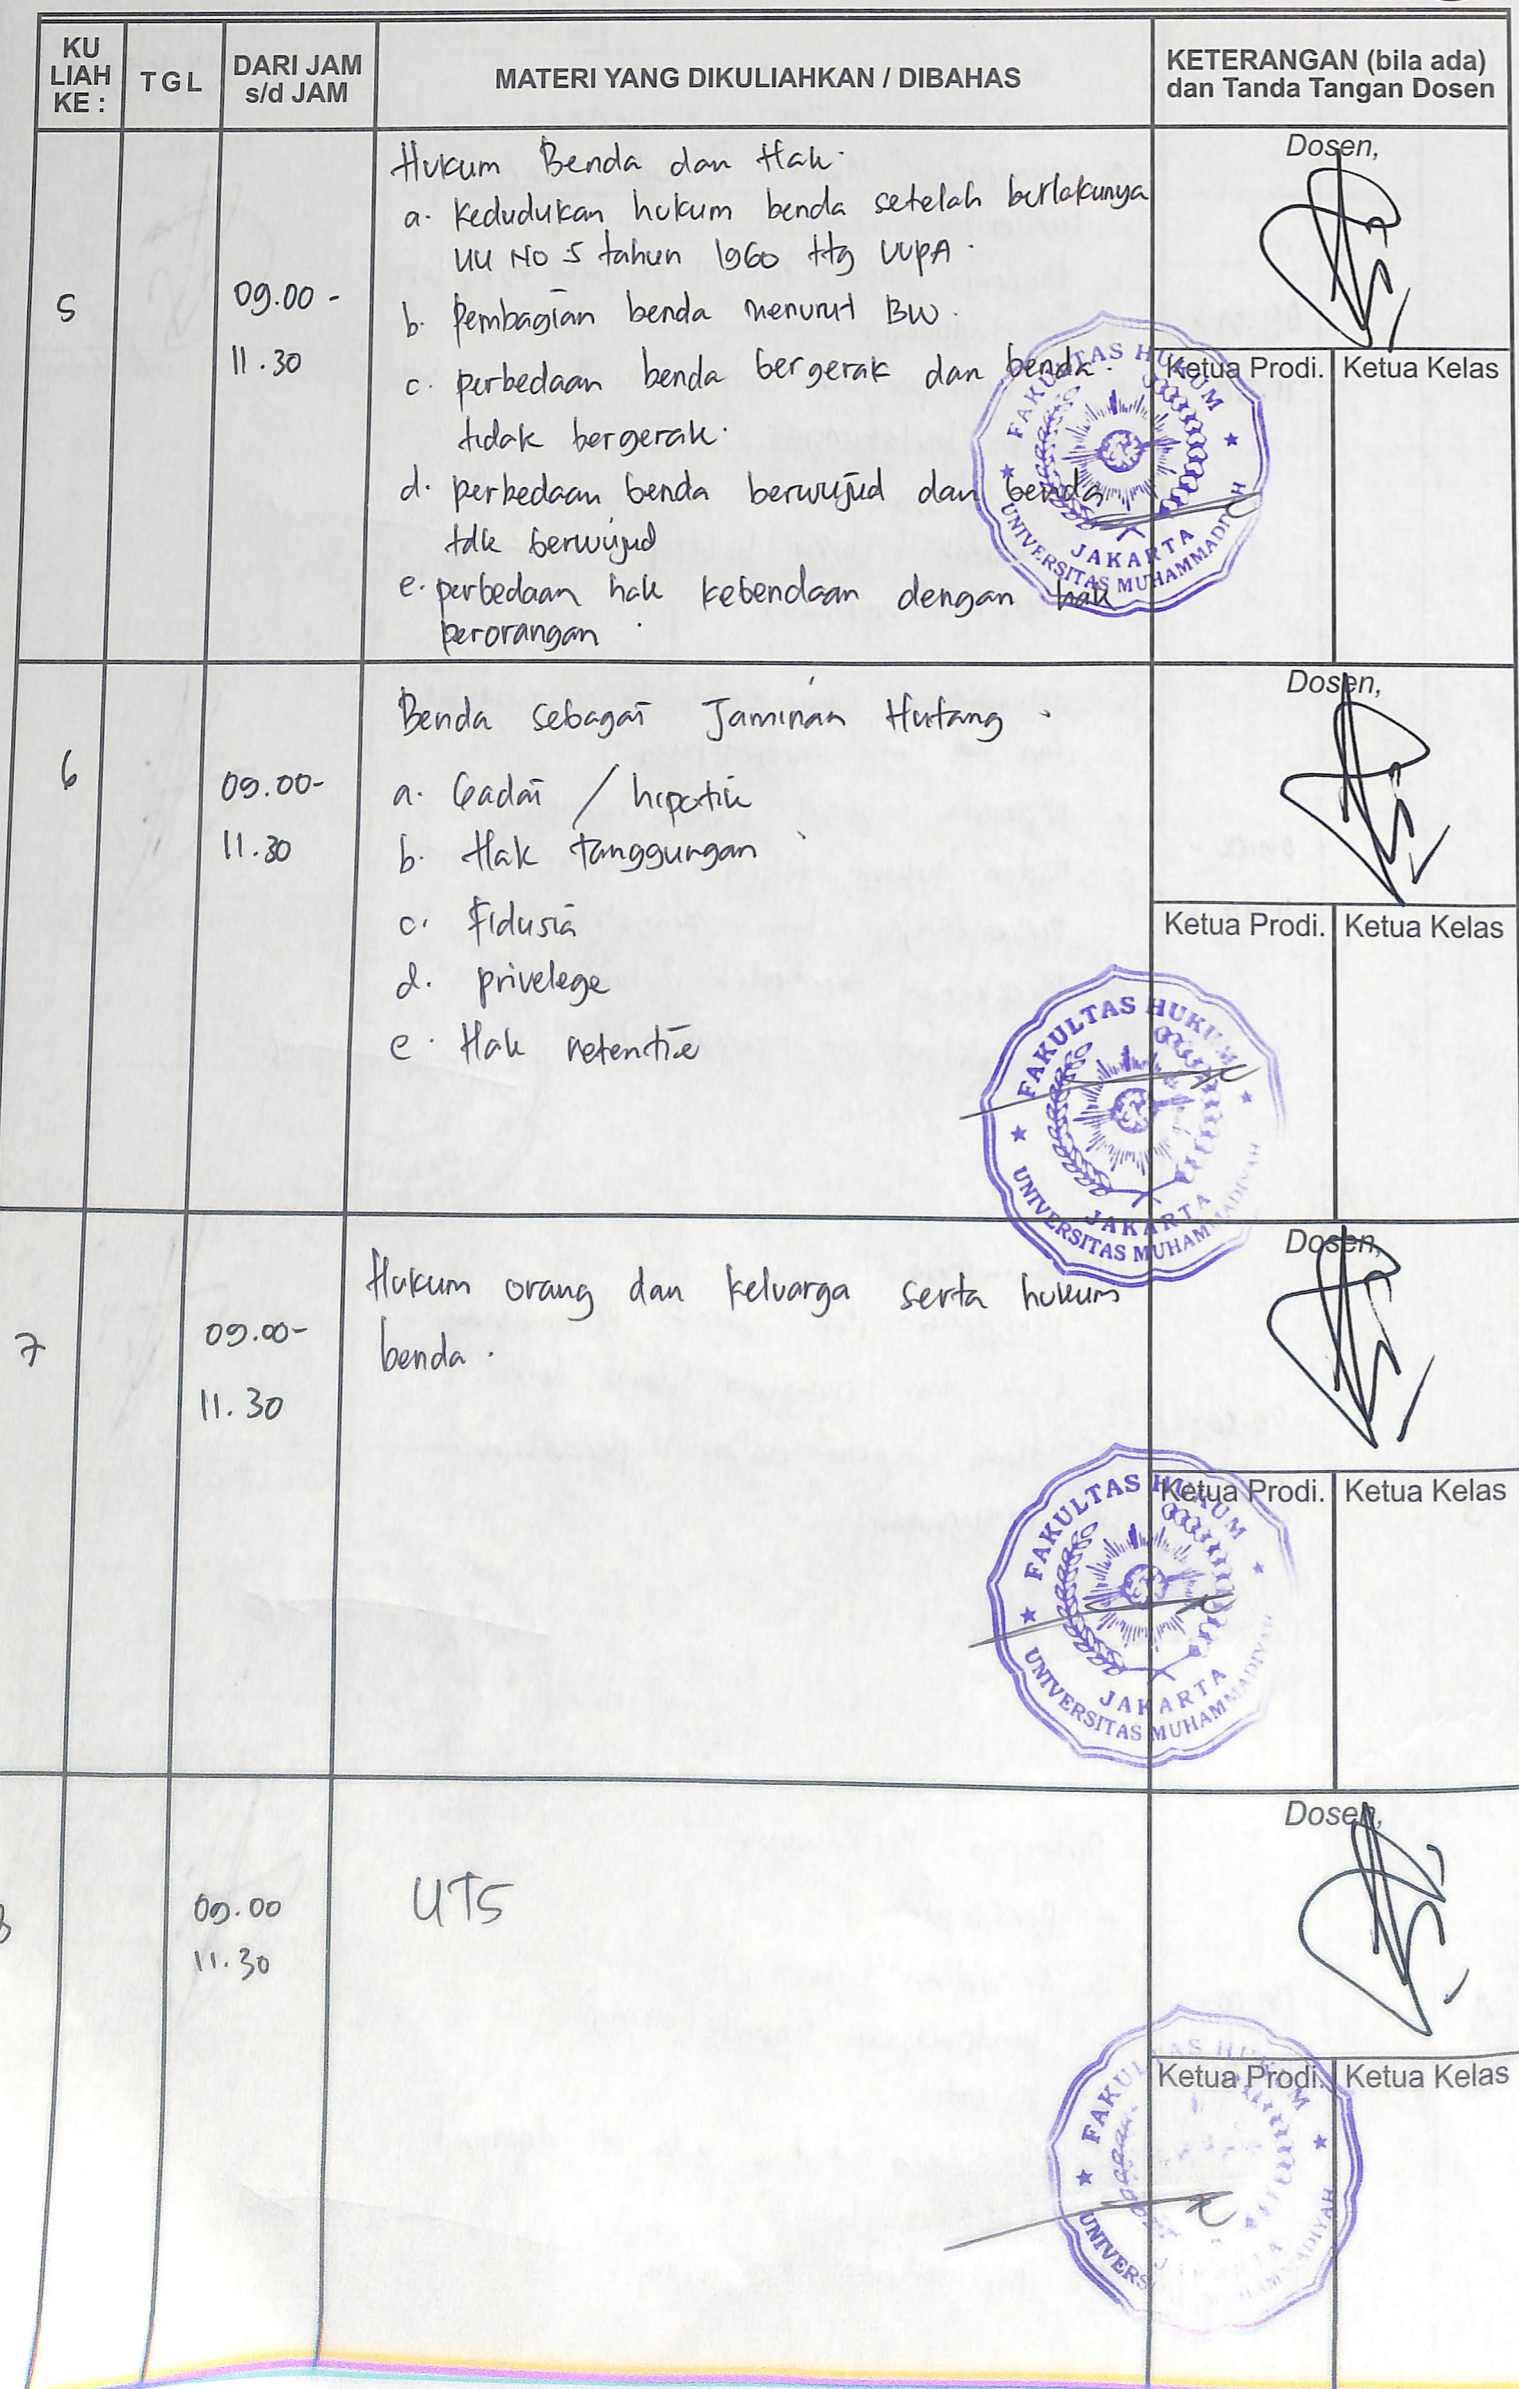 KU
LIAH
KE :
TGL
DARI JAM
s/d JAM
MATERI YANG DIKULIAHKAN / DIBAHAS
KETERANGAN (bila ada)
dan Tanda Tangan Dosen
5
09.00 -
11.30
Hukum Benda dan Hak.
a. Kedudukan hukum benda setelah berlakunya
UU No 5 tahun 1960 ttg UUPA.
b. Pembagian benda menurut BW.
c. perbedaan benda bergerak dan benda.
tidak bergerak.
d. perbedaan benda berwujud dan benda
tdk berwujud
e. perbedaan hak kebendaan dengan hak
perorangan.
Dosen,
Ketua Prodi.
Ketua Kelas
FAKULTAS HUKUM
JAKARTA
UNIVERSITAS MUHAMMADIYAH
6
09.00-
11.30
Benda sebagai Jaminan Hutang.
a. Gadai / hipotik
b. Hak tanggungan
c. Fidusia
d. privelege
e. Hak retentie
Dosen,
Ketua Prodi.
Ketua Kelas
FAKULTAS HUKUM
JAKARTA
UNIVERSITAS MUHAMMADIYAH
7
09.00-
11.30
Hukum orang dan keluarga serta hukum
benda.
Dosen,
Ketua Prodi.
Ketua Kelas
FAKULTAS HUKUM
JAKARTA
UNIVERSITAS MUHAMMADIYAH
8
09.00
11.30
UTS
Dosen,
Ketua Prodi.
Ketua Kelas
FAKULTAS HUKUM